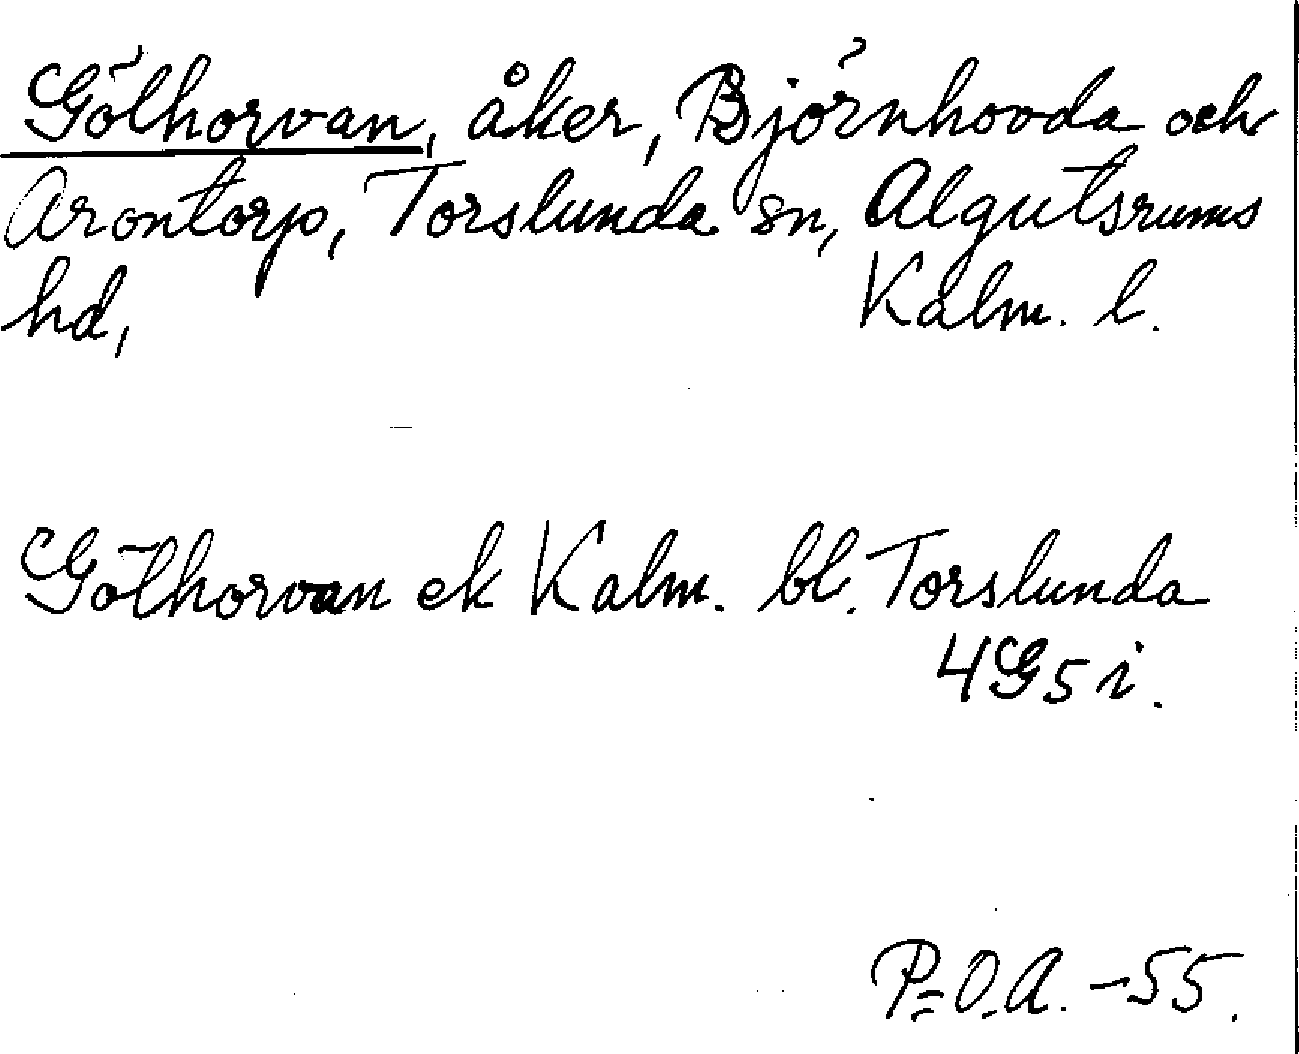 Gölhorvan, åker, Björnhovda och
Arontorp, Torslunda sn, Algutsrums
hd, Kalm. l.
Gölhorvan ek Kalm. bl. Torslunda
4G5i.
P-O.A. -55.